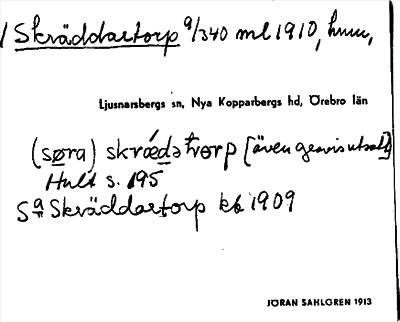 1 Skräddartorp 9/340 ml 1910, hmn,
Ljusnarsbergs sn, Nya Kopparbergs hd, Örebro län
(søra) skrǽdətɷrp [även gravis uttal]
Hult s. 195
Sa Skräddartorp kb 1909
JÖRAN SAHLGREN 1913